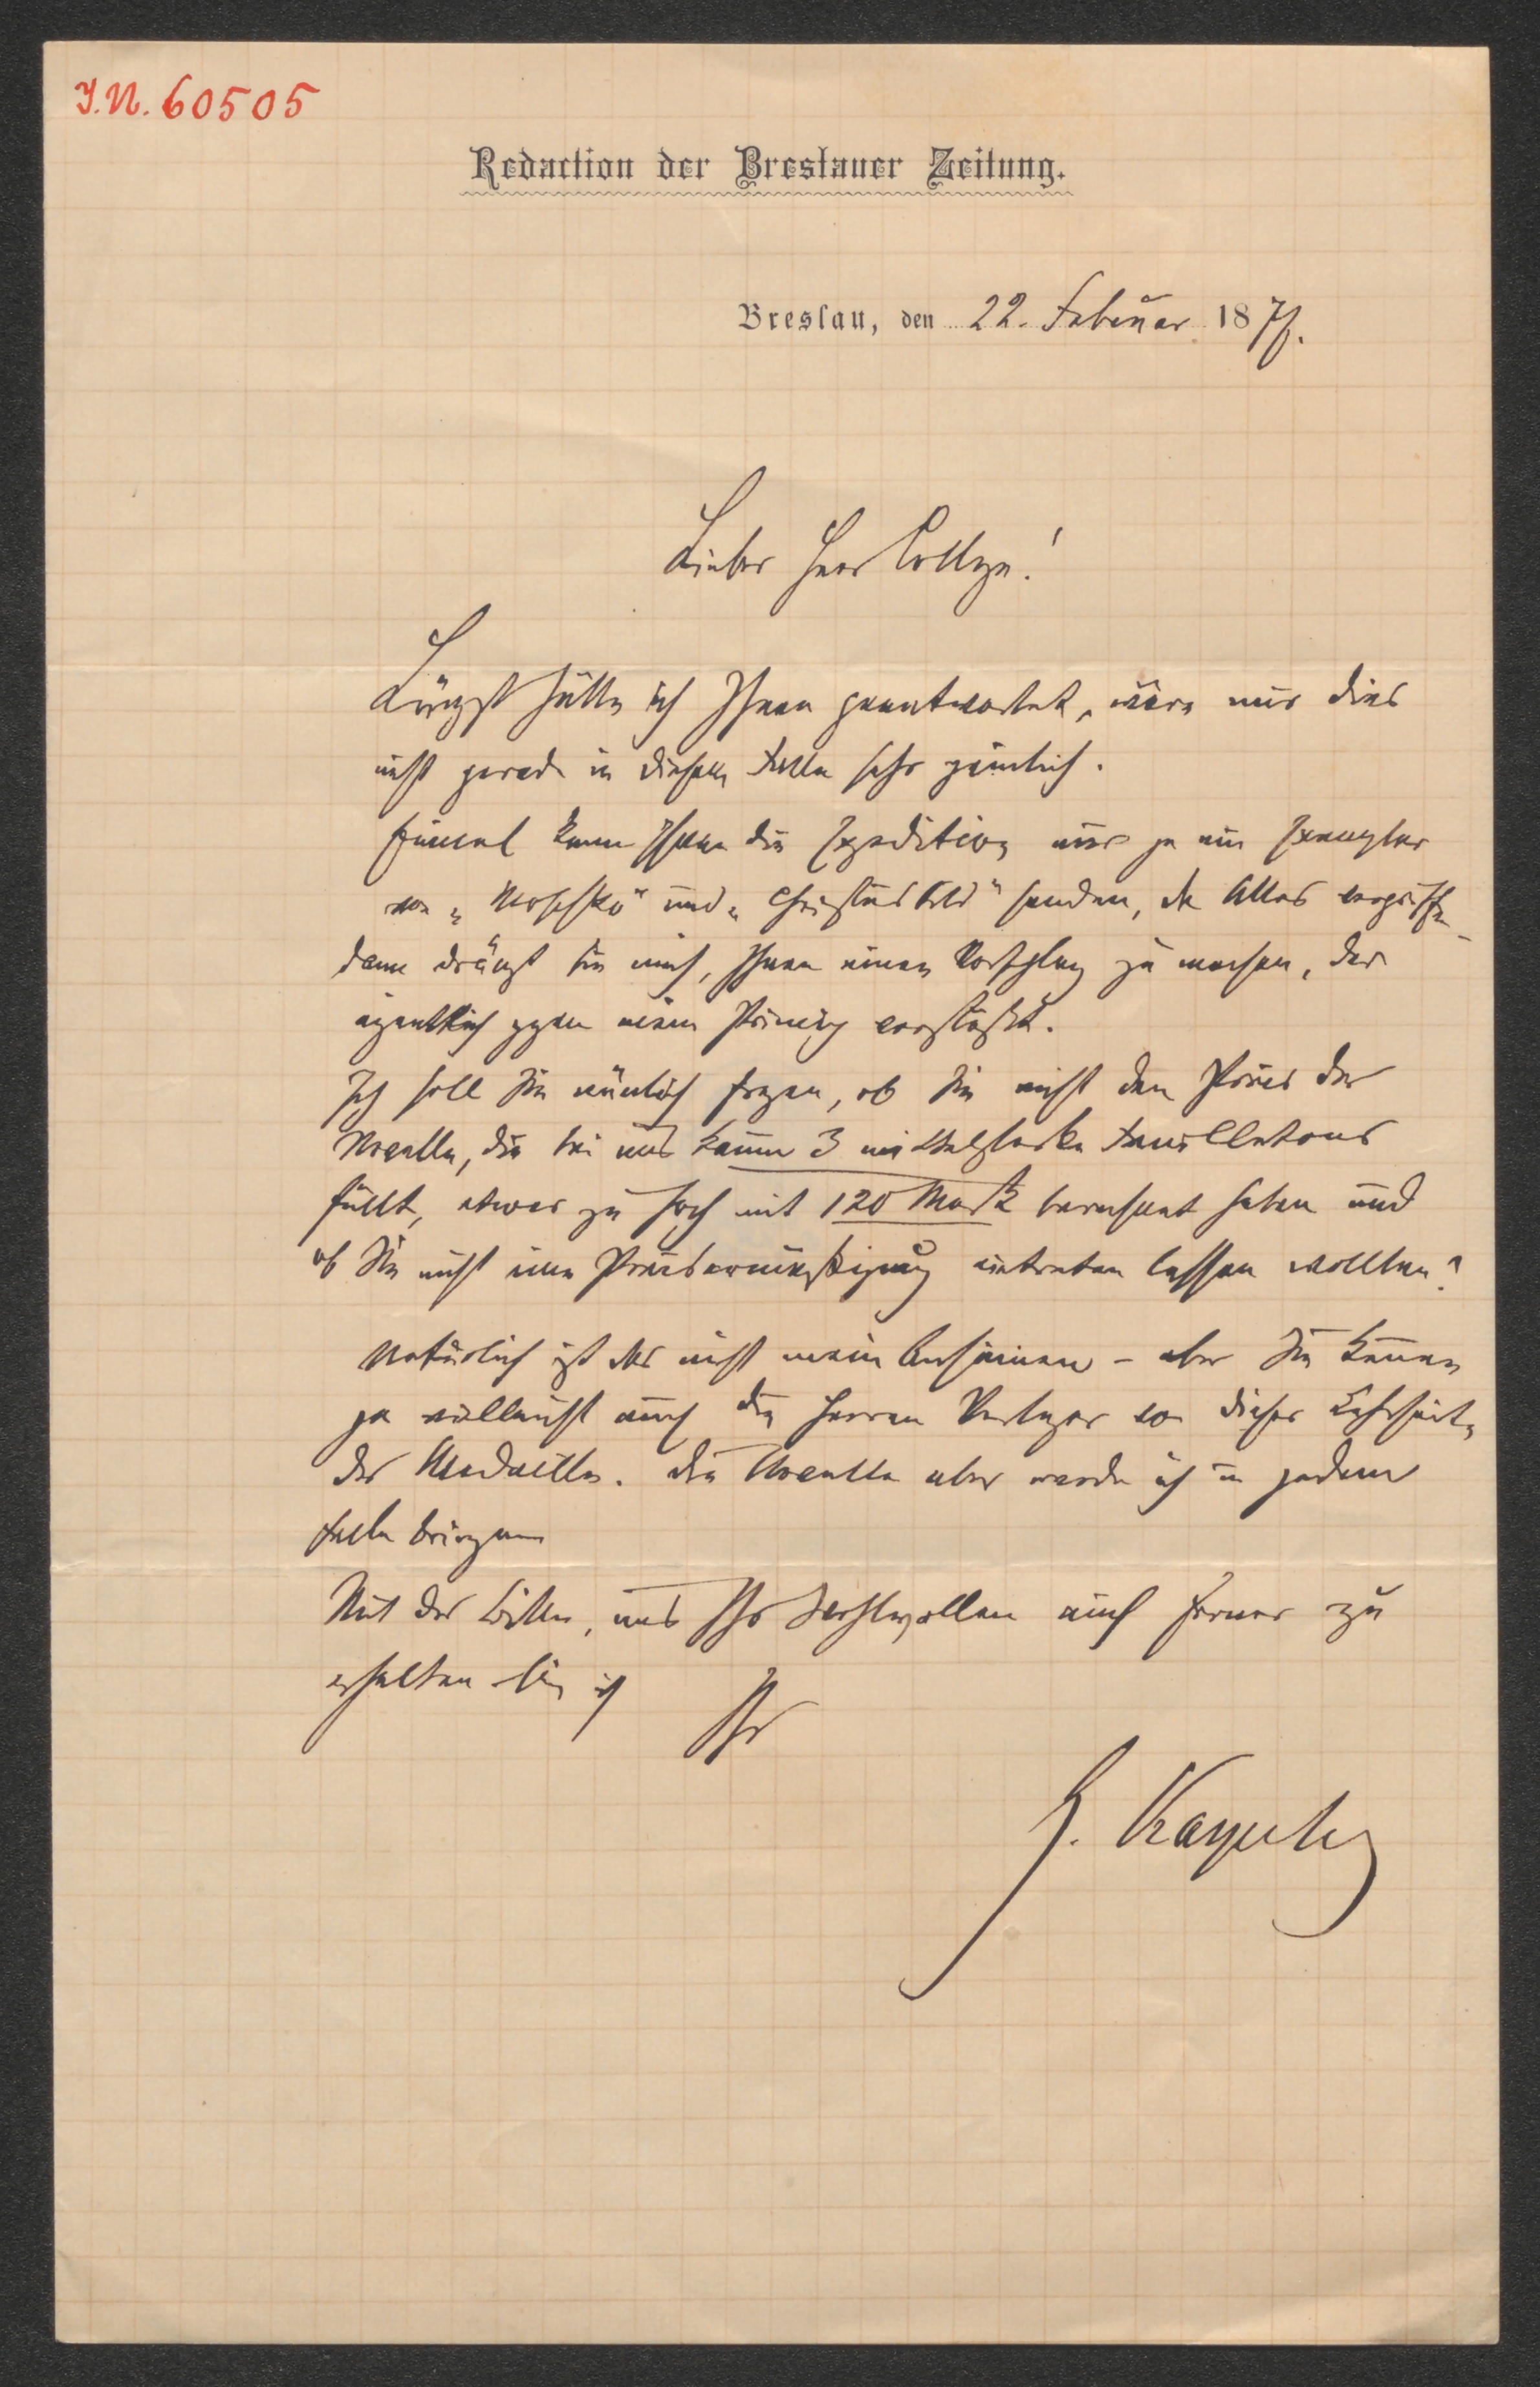 I.N. 60505
Redaction der Breslauer Zeitung.
Breslau, den 22. Februar 187
Lieber Herr College!
Längst hätte ich Ihnen geantwortet, wäre mir dies
nicht gerade in diesem Falle sehr peinlich.
Einmal kann Ihnen die Expedition nur je ein Exemplar
von „Moschko“ und „Christusbild“ senden, da Alles vergriffen
dann drängt sie mich, Ihnen einen Vorschlag zu machen, der
eigentlich gegen mein Princip verstößt.
Ich soll Sie nämlich fragen, ob Sie nicht den Preis der
Novelle, die bei uns kaum 3 mittelstarke Feuilletons
füllt, etwas zu hoch mit 120 Mark berechnet haben und
ob Sie nicht eine Preisermäßigung eintreten lassen wollten?
Natürlich ist das nicht mein Ansinnen – aber Sie kennen
ja vielleicht auch die Herren Verleger von dieser Kehrseite
der Medaille. Die Novelle aber werde ich in jedem
Falle bringen
Mit der Bitte, uns Ihr Wohlwollen auch ferner zu
erhalten bin ich
Ihr
G. Karpeles